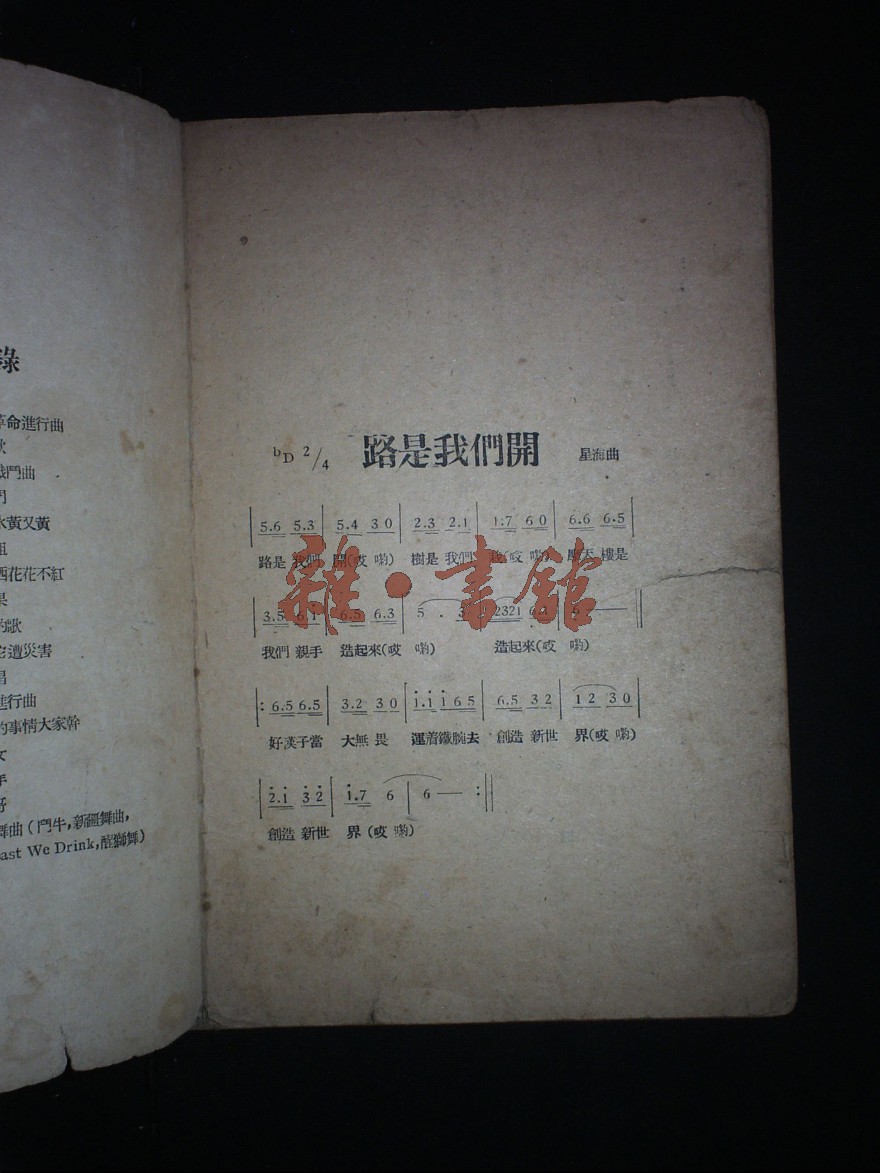 錄
革命進行曲
歌
戰鬥曲
門
水黃又黃
姐
花花不紅
果
的歌
它遭災害
唱
進行曲
的事情大家幹
女
手
舞曲(鬥牛,新疆舞曲,
ast We Drink,醒獅舞)
bD 2/4 路是我們開 星海曲
5.6 5.3 | 5.4 3 0 | 2.3 2.1 | 1.7 6 0 | 6.6 6.5
路是 我們 開(哎 喲) 樹是 我們 (哎 喲) 摩天 樓是
3.5 6.1 | 6.5 6.3 | 5 . | 2321 6 | 6 —
我們 親手 造起來(哎 喲) 造起來(哎 喲)
: 6.5 6.5 | 3.2 3 0 | i.i i 6 5 | 6.5 3 2 | 1 2 3 0
好漢子當 大無畏 運着鐵腕去 創造 新世 界(哎 喲)
2.i 3 2 | i.7 6 | 6 — :
創造 新世 界(哎 喲)
雜·書館